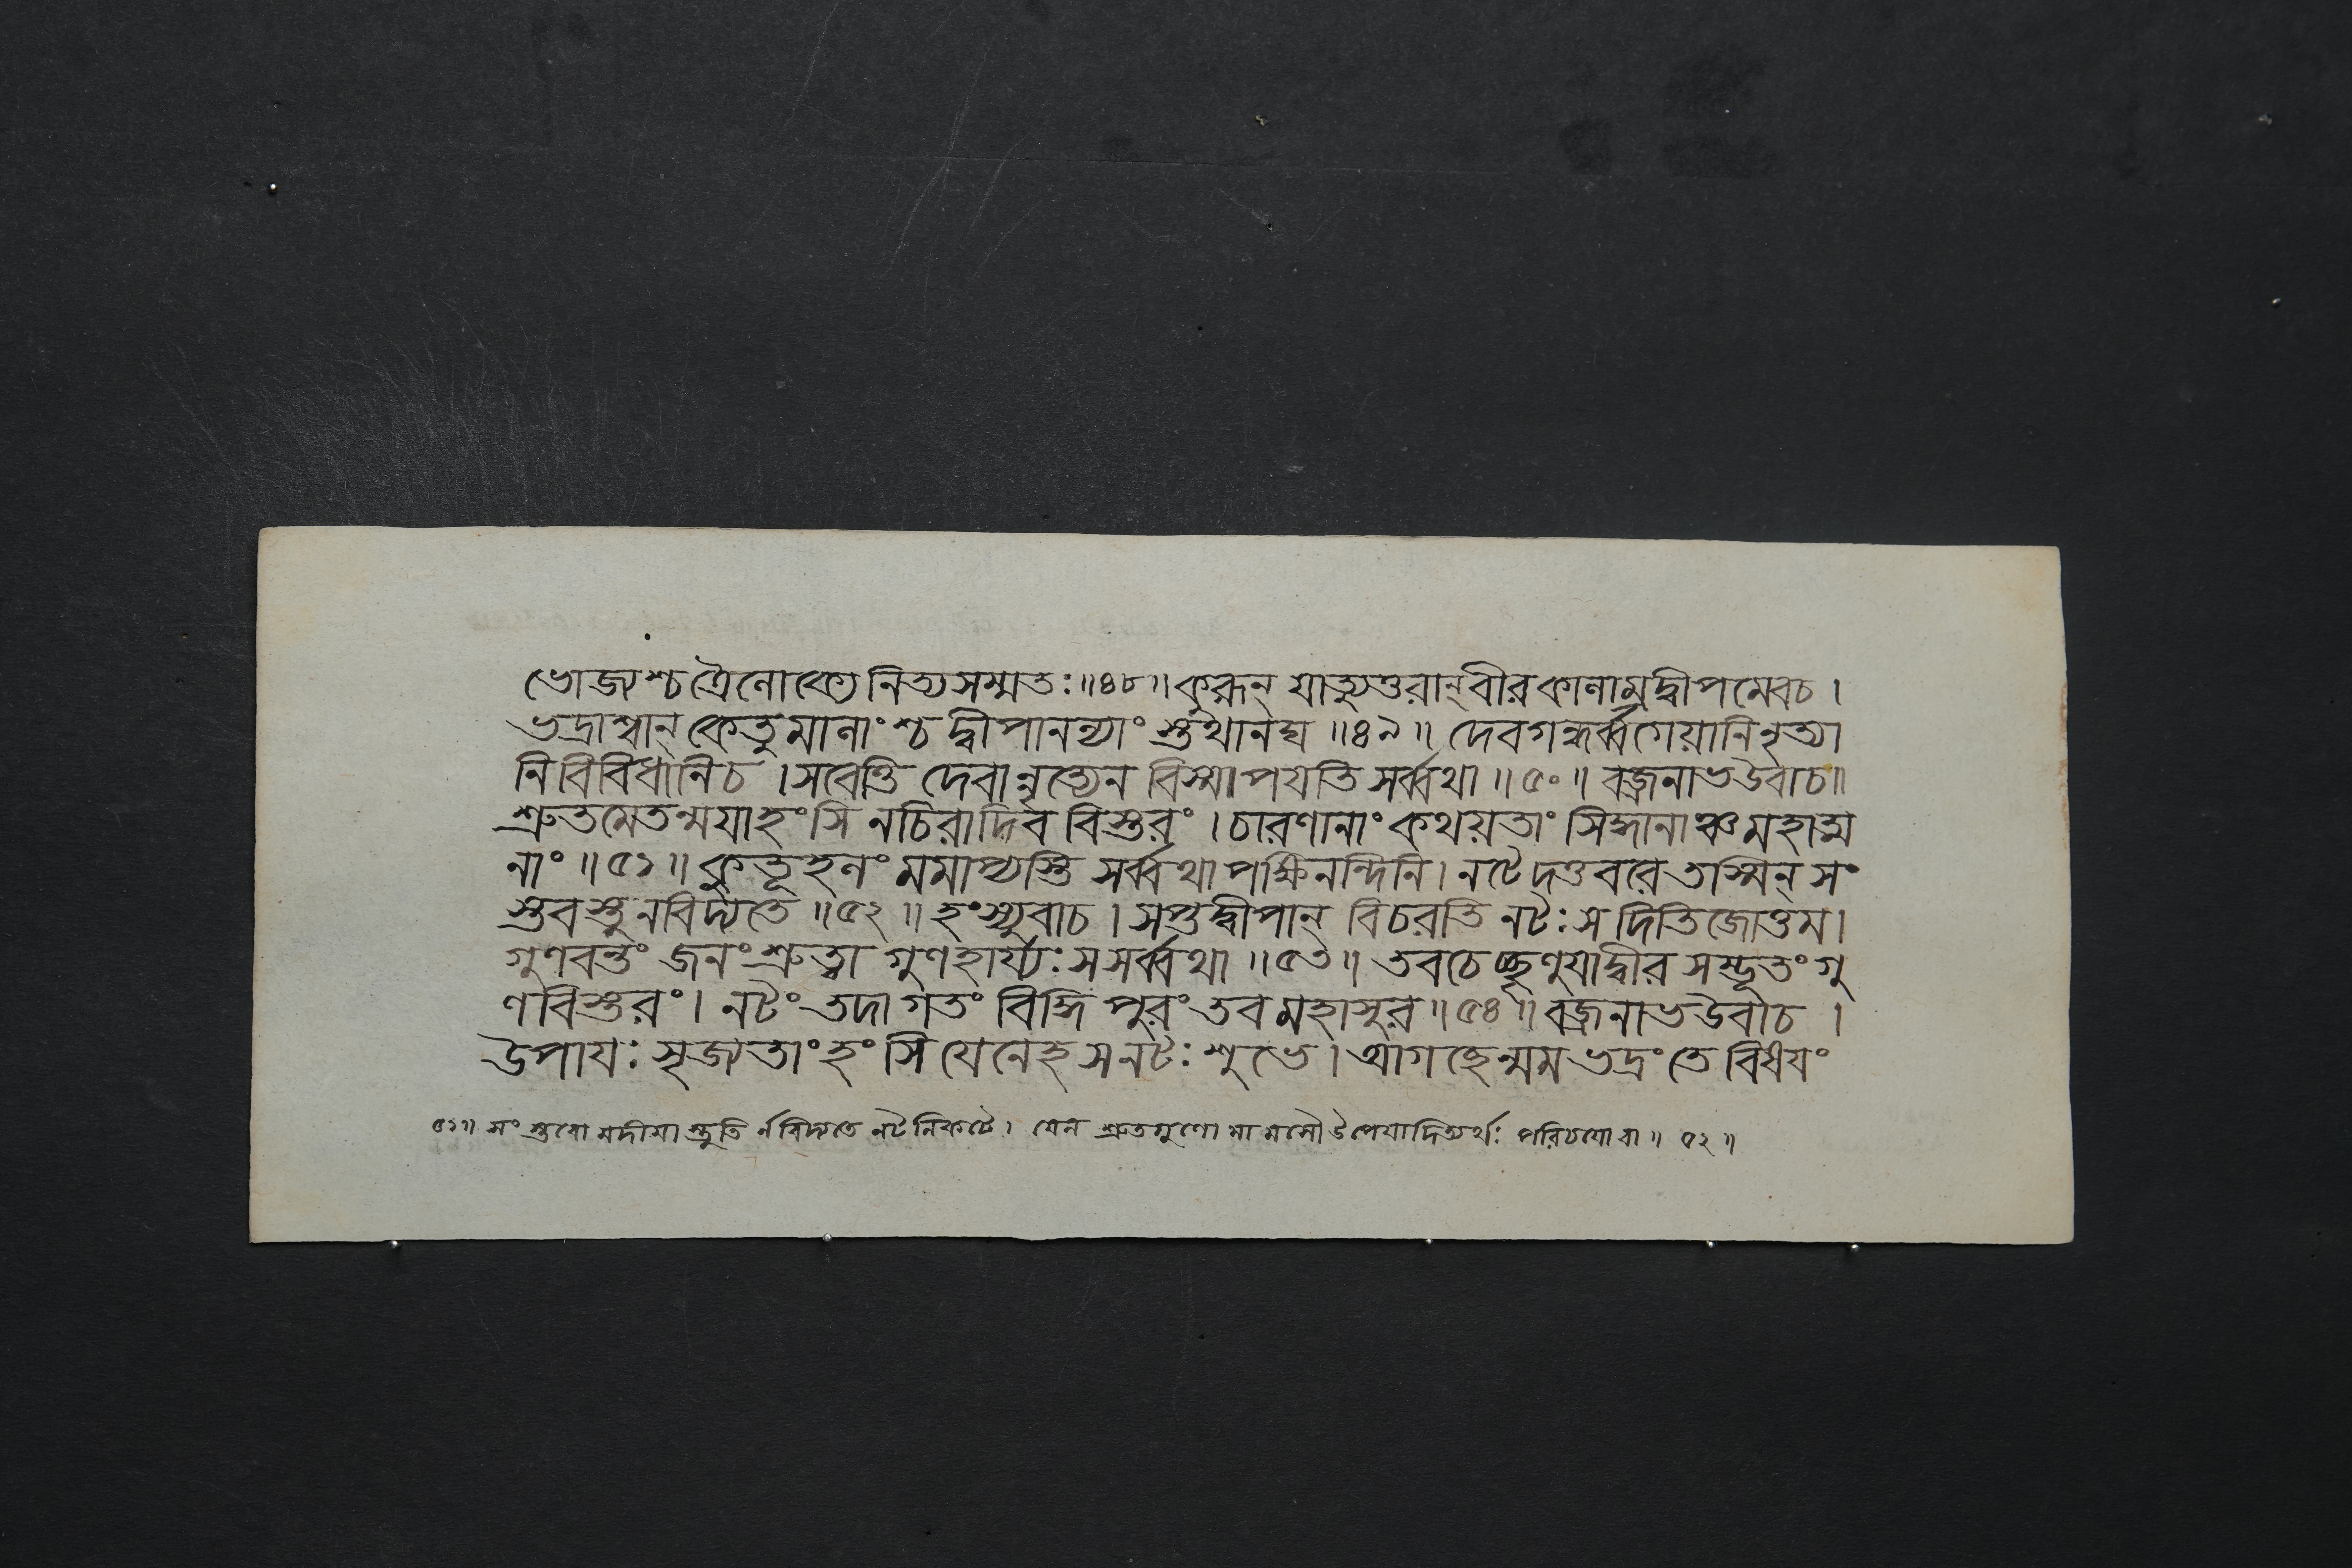 ভোজ্যশ্চ ত্রৈলোক্যে নিত্যসম্মতঃ ॥৪৮॥ কুরূন্ যাত্যুত্তরান্ বীর কালাম্রদ্বীপমেবচ ।
ভদ্রাশ্বান্ কেতুমালাংশ্চ দ্বীপানন্যাংস্তুথানঘ ॥৪৯॥ দেবগন্ধর্ব্বগেয়ানি নৃত্যা
নি বিবিধানিচ । সবেত্তি দেবান্নৃত্যেন বিস্মাপযতি সর্ব্বথা ॥৫০॥ বজ্রনাভউবাচ॥
শ্রুতমেতন্ময়াহংসি নচিরাদিব বিস্তরং । চারণানাং কথয়তাং সিদ্ধানাঞ্চমহাত্ম
নাং ॥৫১॥ কুতূহলং মমাপ্যস্তি সর্ব্বথা পক্ষিনন্দিনি। নটে দত্তবরে তস্মিন্ সং
স্তবস্তু নবিদ্যতে ॥৫২॥ হংস্যুবাচ । সপ্তদ্বীপান্ বিচরতি নটঃ স দিতিজোত্তম।
গুণবন্তং জনং শ্রুত্বা গুণহার্য্যঃ সসর্ব্বথা ॥৫৩॥ তবচেচ্ছৃণুযাদ্বীর সম্ভূতং গু
ণবিস্তরং । নটং তদাগতং বিদ্ধি পুরং তব মহাসুর ॥৫৪॥ বজ্রনাভউবাচ ।
উপাযঃ সৃজ্যতাং হংসি যেনেহ সনটঃ শুভে । আগচ্ছেন্মম ভদ্রং তে বিষযং
৫২॥ সংস্তবো মদীযা স্তুতি র্নবিদ্যতে নটনিকটে । যেন শ্রুতগুণো মামসৌ উপেযাদিত্যর্থঃ পরিচযোবা ॥ ৫২ ॥